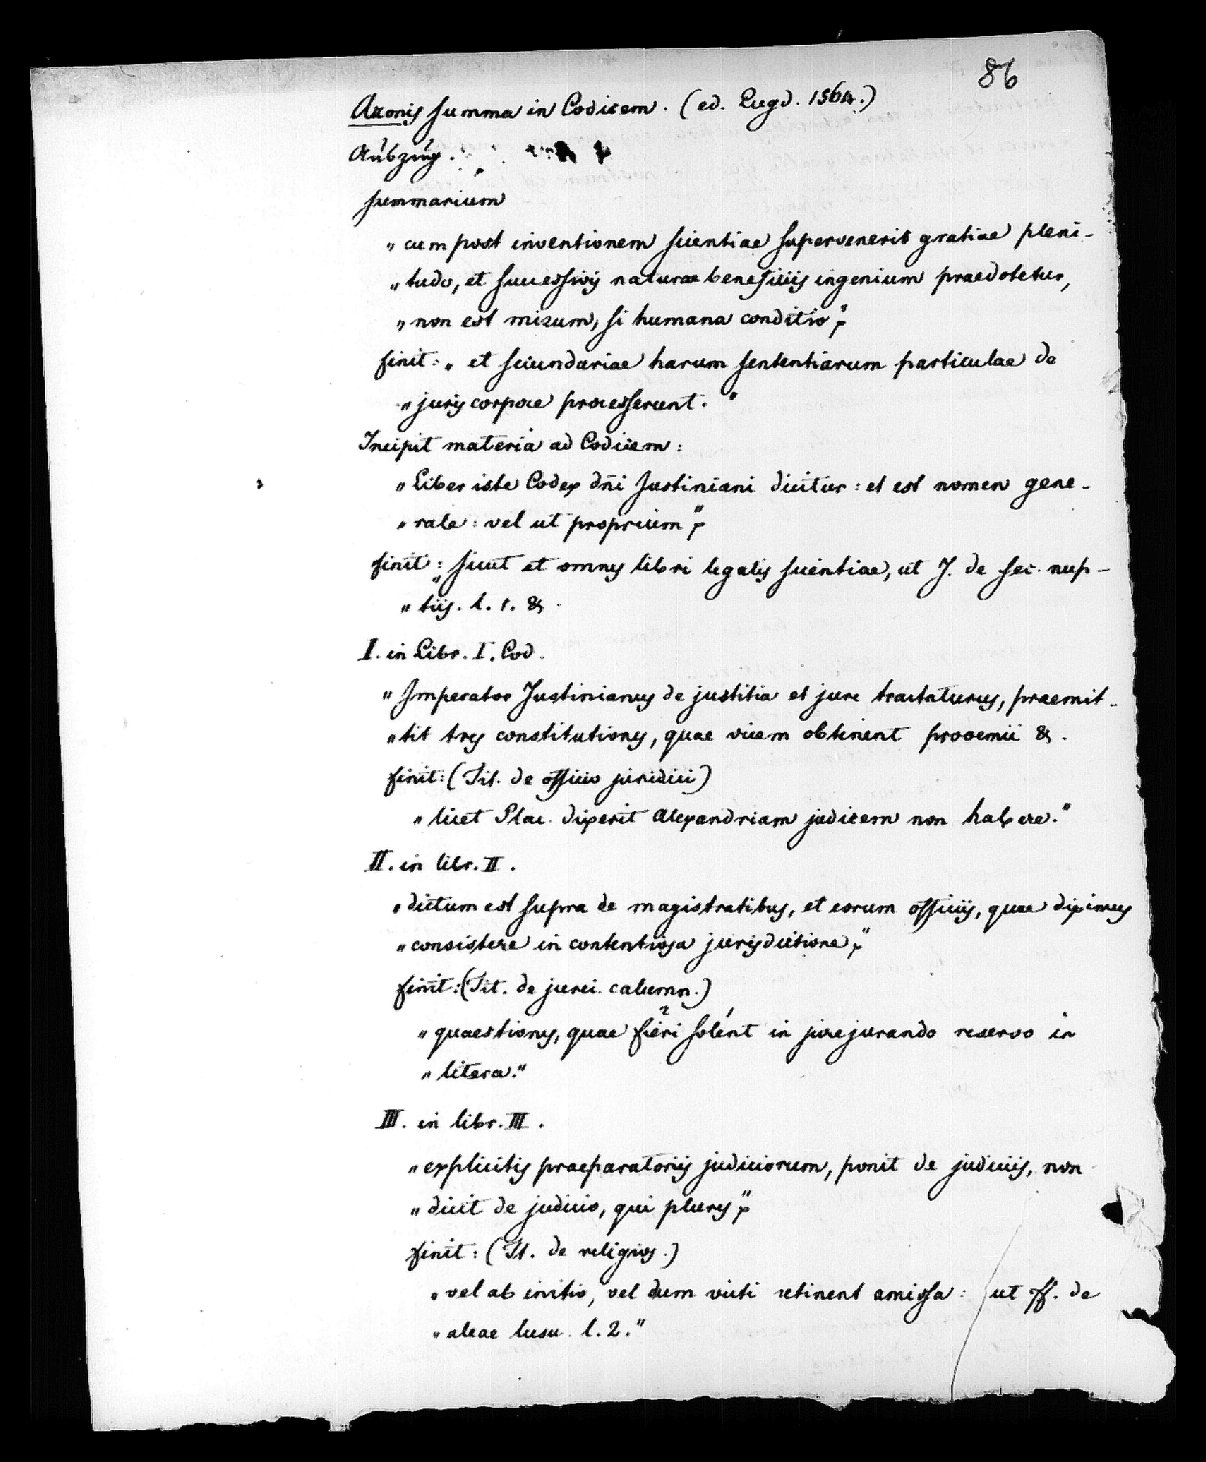 86
Azonis summa in Codicem. (ed. Lugd. 1564.)
Auszug.
Summarium
„cum post inventionem scientiae supervenerit gratiae pleni-
„tudo, et successivis naturae beneficiis ingenium praedotetur,
„non est mirum, si humana conditio"
finit: „et secundariae harum sententiarum particulae de
„juris corpore processerunt."
Incipit materia ad Codicem:
„Liber iste Codex dñi Justiniani dicitur: et est nomen gene-
„rale: vel ut proprium"
finit: „sicut et omnes libri legalis scientiae, ut J. de sec. nup-
„tiis. l. 1. &.
I. in Libr. I. Cod.
„Imperator Justinianus de justitia et jure tractaturus, praemit-
„tit tres constitutiones, quae vicem obtinent prooemii &.
finit: (Tit. de officio juridici)
„licet Plac. dixerit Alexandriam judicem non habere."
II. in libr. II.
„dictum est supra de magistratibus, et eorum officiis, quae diximus
„consistere in contentiosa jurisdictione,"
finit: (Tit. de jurei. calumn.)
„quaestiones, quae fieri solent in jurejurando reservo in
„litera."
III. in libr. III.
„explicitis praeparatoriis judiciorum, ponit de judiciis, non
„dicit de judicio, qui plures"
finit: (Tit. de religios.)
„vel ab initio, vel dum victi retinent amissa: ut ff. de
„aleae lusu. l. 2."